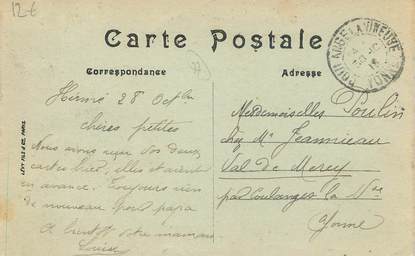 12€
Carte Postale
Correspondance
Adresse
28 Oct
chères petites
Nous avons reçu vos deux
cartes hier, elles étaient
en avance. Toujours rien
de nouveau pour papa
A bientôt votre maman
Louise
Mesdemoiselles Poulin
chez Mr Jeannieau
Val de Mercy
par Coulanges la Vse
Yonne
LEVY FILS & CIE, PARIS
YONNE